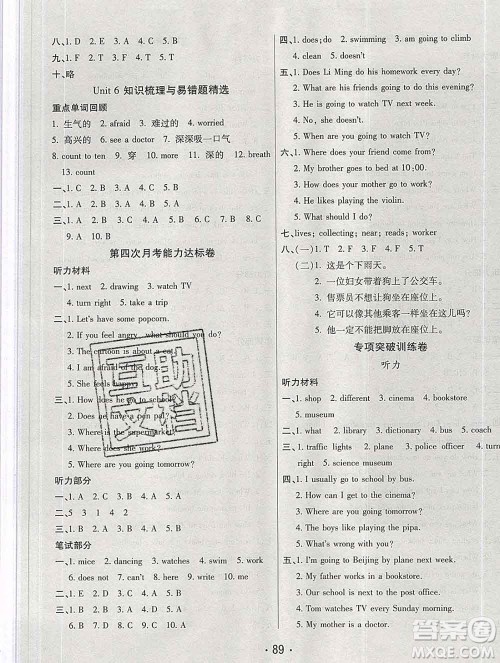 八、1. D  2. E  3. A  4. C  5. B
九、1. F  2. T  3. F  4. T  5. T
十、略
Unit 6 知识梳理与易错题精选
重点单词回顾
1. 生气的  2. 害怕  3. 难过的  4. worried
5. 高兴的  6. see a doctor  7. 深深吸一口气
8. count to ten  9. 穿  10. more  11. 深的  12. breath
13. count
一、1. C  2. B  3. A  4. B  5. C
二、1. A  2. C  3. B  4. A  5. C
三、1. A  2. A  3. B  4. C  5. A  6. B  7. B
8. C  9. A  10. B
第四次月考能力达标卷
听力材料
一、1. next  2. drawing  3. watch TV
4. turn right  5. take a trip
二、1. Let's have some popcorn.
2. If you feel angry, what should you do?
3. The cartoon is about a cat.
4. I am afraid of the dog.
5. She feels happy.
三、1. How does he go
2. Does he have a pen pal?
3. Where is the supermarket?
4. Where does she work?
5. Where are you going tomorrow?
听力部分
一、1. A  2. C  3. A  4. B  5. A
二、5  3  1  4  2
三、1. B  2. A  3. B  4. A  5. A
笔试部分
一、1. mice  2. dancing  3. watches  4. swim
5. does not  6. can not  7. did not  8. writes
9. taking  10. see
二、1. D  2. C  3. A  4. E  5. B
三、1. C  2. B  3. A  4. C  5. B  6. B  7. A
8. C  9. A  10. B
四、1. does; do  2. swims  3. am going to climb
4. clean  5. doesn't
五、1. Does Li Ming do his homework every day?
2. What are your friends going to do this evening?
3. He is going to watch TV
4. No, she doesn't.
5. He is going to the post office.
六、1. Where does your friend come from?
2. My brother goes to bed at 10:00.
3. How does your mother go to work?
4. It is next to the hospital.
七、lives; collecting; near; reads; worker
八、(一)1. F  2. F  3. T  4. T  5. F
(二)1. 这是个下雨天。
2. 一位妇女带着狗上了公交车。
3. 售票员不让狗坐在座位上。
4. 它可以像其他乘客一样坐在这儿吗？
5. 他一定不能把脚放在座位上。
专项突破训练卷
听力
听力材料
一、1. shop  2. different  3. cinema  4. bookstore
5. museum
二、1. what  2. library  3. dictionary  4. about
5. comic book
三、1. traffic lights  2. plane  3. police officer
4. crossing  5. science museum
四、1. I usually go to school by bus.
2. How can I get to the cinema?
3. You should see the doctor.
4. The two boys like playing the pipa.
5. What's wrong with you?
五、1. I'm going to Beijing by plane next week.
2. My father works in a bookstore.
3. I often go to school by bus.
4. Tom watches TV every Sunday morning.
5. My grandma is going to buy some flowers
· 89 ·
互助文档
答案圈
MXQE.COM